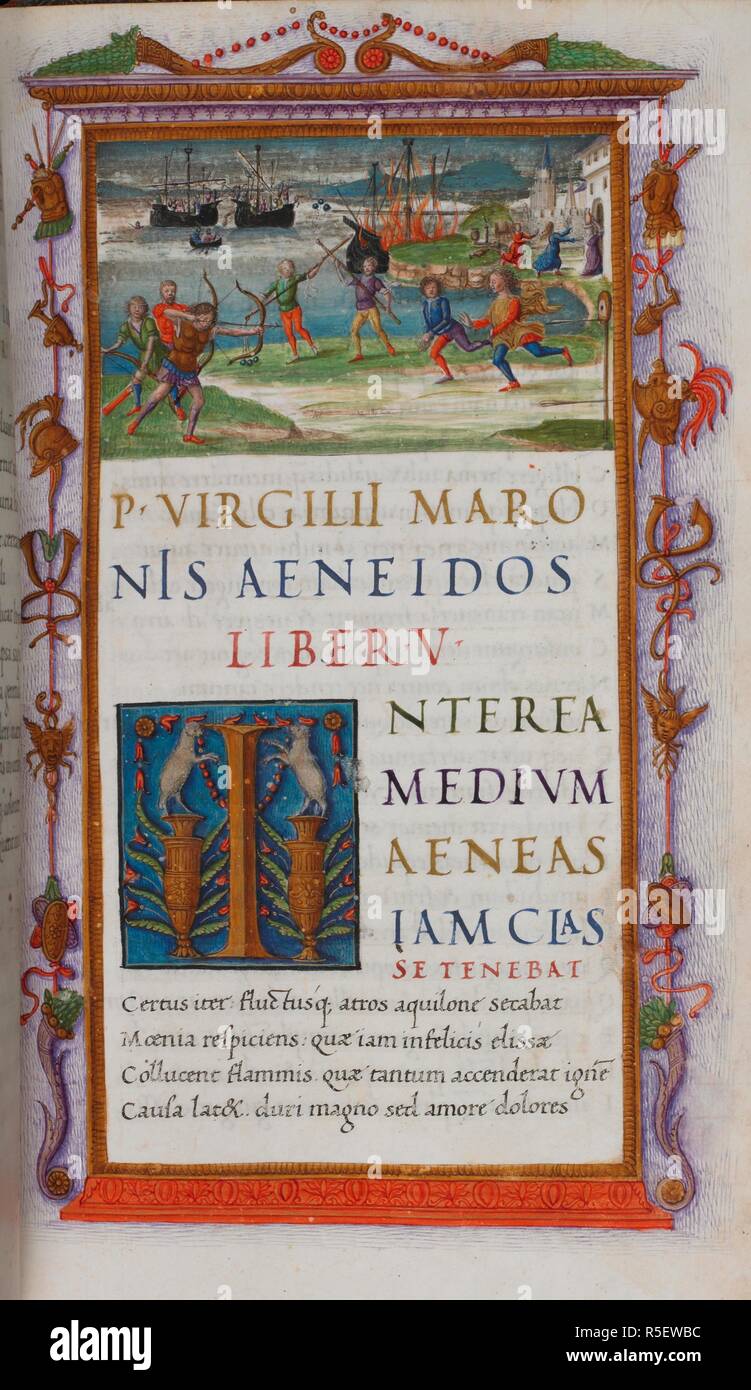 P· VIRGILII MARO
NIS AENEIDOS
LIBER·V·
INTEREA
MEDIVM
AENEAS
IAM CLAS
SE TENEBAT
Certus iter· fluctusq; atros aquilone secabat
Mœnia respiciens· quæ iam infelicis elissæ
Collucent flammis· quæ tantum accenderat ignẽ
Causa lat&· duri magno sed amore dolores
alamy
Image ID: R5EWBC
www.alamy.com